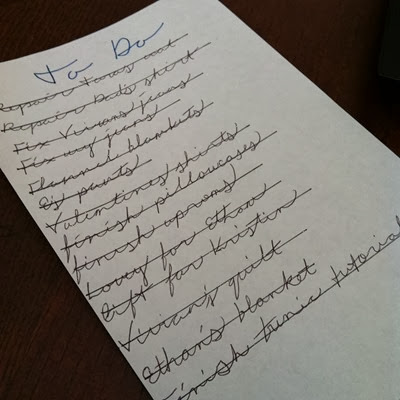 To Do
Repair Taras coat
Repair Dad's shirt
Fix Vivians jeans
Fix my jeans
Flannel blankets
EJ pants
Valentines shirts
finish pillowcases
finish aprons
Lovey for Ethan
Gift for Kristin
Vivian's quilt
Ethan's blanket
finish tunic tutorial